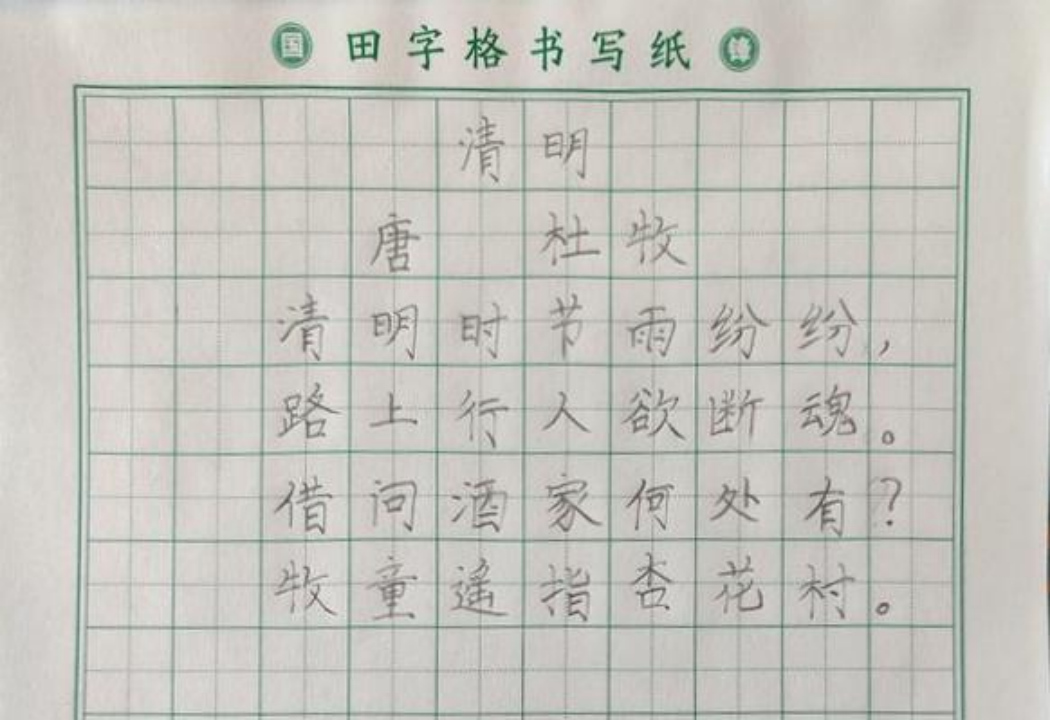 田字格书写纸
清明
唐 杜牧
清明时节雨纷纷，
路上行人欲断魂。
借问酒家何处有？
牧童遥指杏花村。